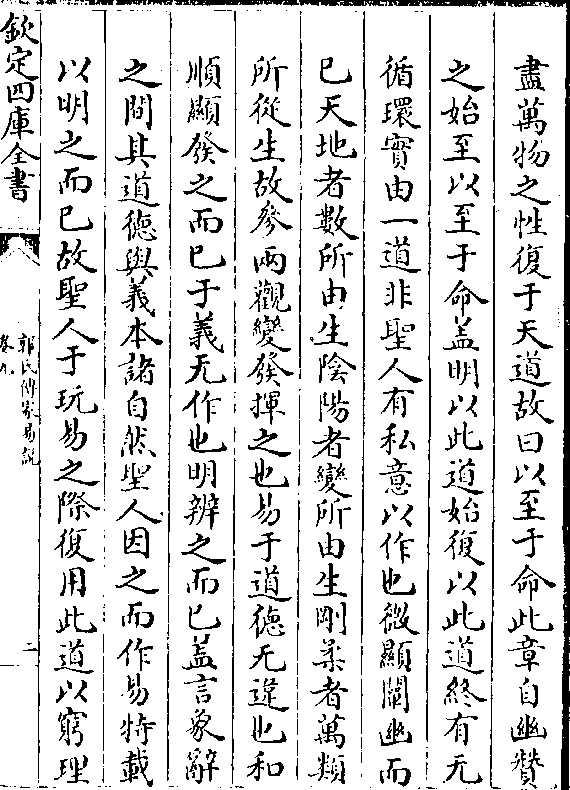 盡萬物之性復于天道故曰以至于命此章自幽贊
之始至以至于命盖明以此道始復以此道終有无
循環實由一道非聖人有私意以作也微顯闡幽而
已天地者數所由生陰陽者變所由生剛柔者萬類
所從生故參兩觀變發揮之也易于道德无違也和
順顯發之而已于義无作也明辨之而已盖言象辭
之間其道德與義本諸自然聖人因之而作易特載
以明之而已故聖人于玩易之際復用此道以窮理
欽定四庫全書
郭氏傳家易說
卷九
二